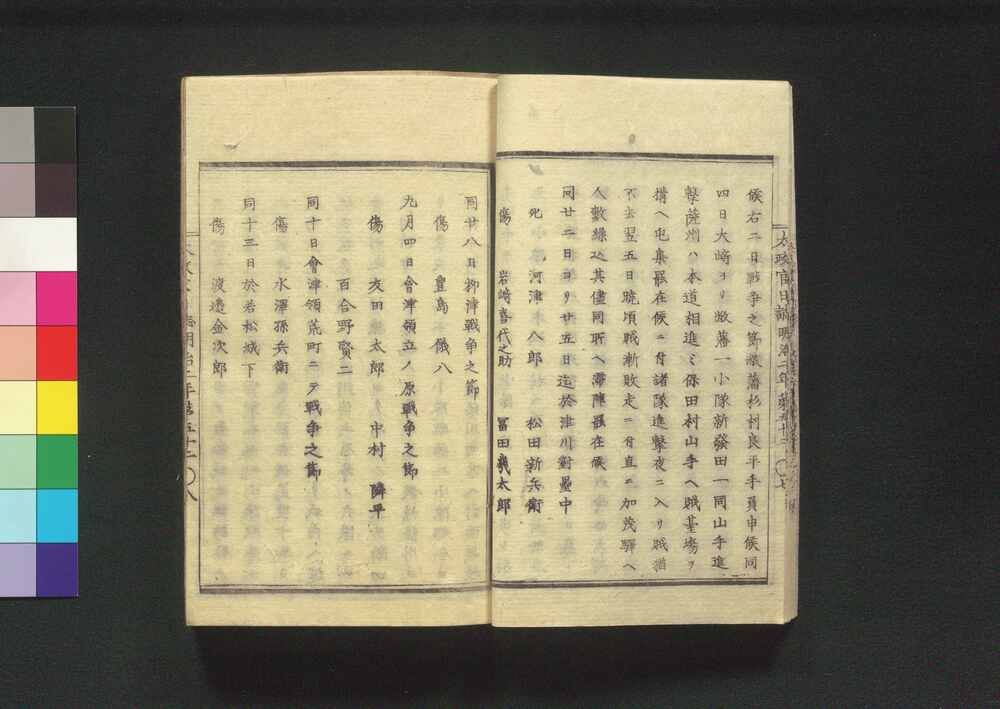 候右二日戦争之節戯藩杉村良平手負申候同
四日大﨑ヨリ敝藩一小隊新發田一同山手進
撃薩州ハ本道相進ミ保田村山手ヘ賊基場ヲ
搆ヘ屯集罷在候ニ付諸隊進撃夜ニ入リ賊猶
不去翌五日暁頃賊漸敗走ニ付直ニ加茂驛ヘ
人數繰込其儘同所ヘ滞陣罷在候
同廿二日ヨリ廿五日迄於津川對壘中
死 河津本八郎 松田新兵衛
傷 岩﨑喜代之助 冨田義太郎
同廿八日柳津戦争之節
傷 豊島儀八
九月四日會津領立ノ原戦争之節
傷 友田鎌太郎 中村隣平
百合野賢二
同十日會津領荒町ニテ戦争之節
傷 水澤孫兵衛
同十三日於若松城下
傷 渡邉金次郎
太政官日誌明治二年第五十二 〇七
太政官日誌明治二年第五十二 〇八